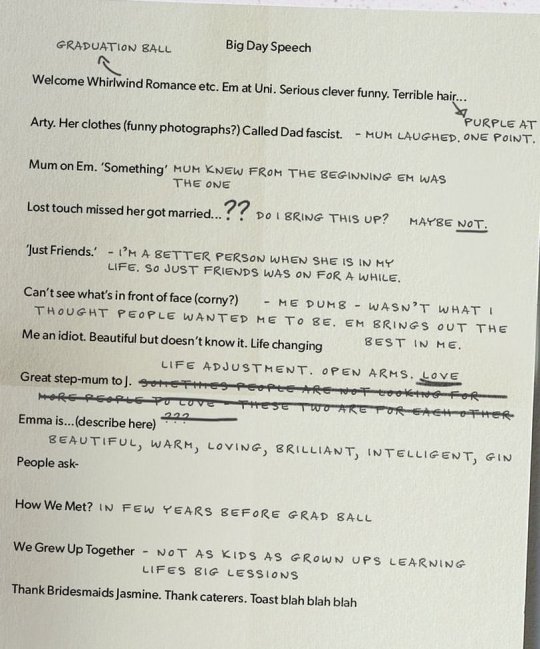 GRADUATION BALL Big Day Speech
Welcome Whirlwind Romance etc. Em at Uni. Serious clever funny. Terrible hair...
PURPLE AT
Arty. Her clothes (funny photographs?) Called Dad fascist. - MUM LAUGHED. ONE POINT.
Mum on Em. 'Something' MUM KNEW FROM THE BEGINNING EM WAS
THE ONE
Lost touch missed her got married...?? DO I BRING THIS UP? MAYBE NOT.
'Just Friends.' - I'M A BETTER PERSON WHEN SHE IS IN MY
LIFE. SO JUST FRIENDS WAS ON FOR A WHILE.
Can't see what's in front of face (corny?) - ME DUMB - WASN'T WHAT I
THOUGHT PEOPLE WANTED ME TO BE. EM BRINGS OUT THE
Me an idiot. Beautiful but doesn't know it. Life changing BEST IN ME.
LIFE ADJUSTMENT. OPEN ARMS. LOVE
Great step-mum to J. SOMETHIES PEOPLE ARE NOT LOOKING FOR
MORE PEOPLE TO LOVE - THESE TWO ARE FOR EACH OTHER
Emma is...(describe here) ???
BEAUTIFUL, WARM, LOVING, BRILLIANT, INTELLIGENT, GIN
People ask-
How We Met? IN FEW YEARS BEFORE GRAD BALL
We Grew Up Together - NOT AS KIDS AS GROWN UPS LEARNING
LIFES BIG LESSIONS
Thank Bridesmaids Jasmine. Thank caterers. Toast blah blah blah